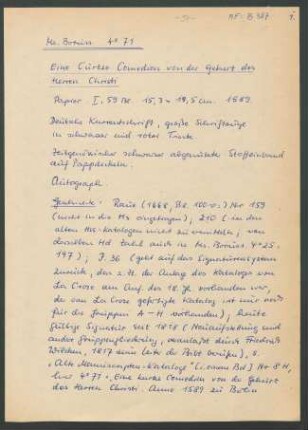 - 51 -
1.
Ms. Boruss. 4° 71
Eine Curtze Comedien von der Geburt des
Herren Christi
Papier I, 59 Bl. 15,3 × 19,5 cm. 1589
Deutsche Kurrentschrift, große Schriftzüge
in schwarzer und roter Tinte
Zeitgenössischer schwarzer abgenutzter Stoffeinband
auf Pappdeckeln.
Autograph
Geschichte: Raue (1668, Bl. 100v:) Nr 159
(nicht in die Hs eingetragen), 210 (in den
alten Hss-katalogen nicht zu ermitteln, von
derselben Hd auch in Ms. Boruss. 4° 25.
197); J. 36 (geht auf das Signaturensystem
zurück, das z. Zt. der Anlage des Katalogs von
La Croze am Anf. des 18. Jh. vorhanden war,
der von La Croze gefertigte Katalog ist nur noch
für die Gruppen A - H vorhanden); heute
gültige Signatur seit 1818 (Neuaufstellung und
andere Gruppengliederung, veranlaßt durch Friedrich
Wilken, 1817 zum Leiter der Bibl. berufen), s.
"Alte Manuscripten-Kataloge" Nr 8 H,
4° 71 "Eine kurtze Comedien von der Geburt
des Herren Christi. Anno 1589 zu Berlin